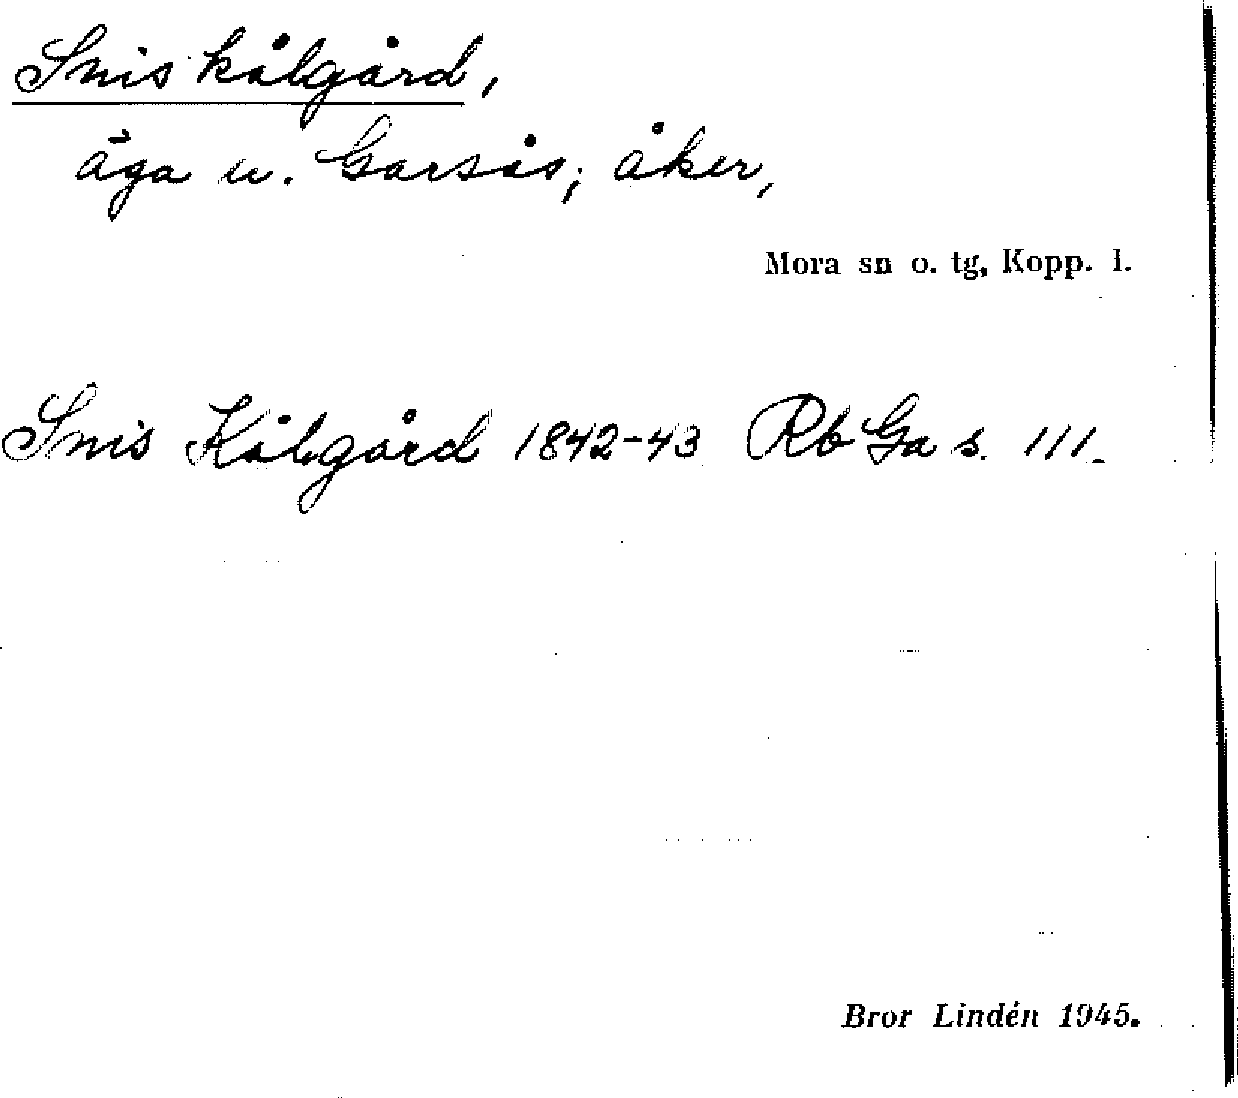 Snis kålgård,
äga u. Garsås; åker,
Mora sn o. tg, Kopp. l.
Snis Kålgård 1842-43 Rb Ga s. 111.
Bror Lindén 1945.